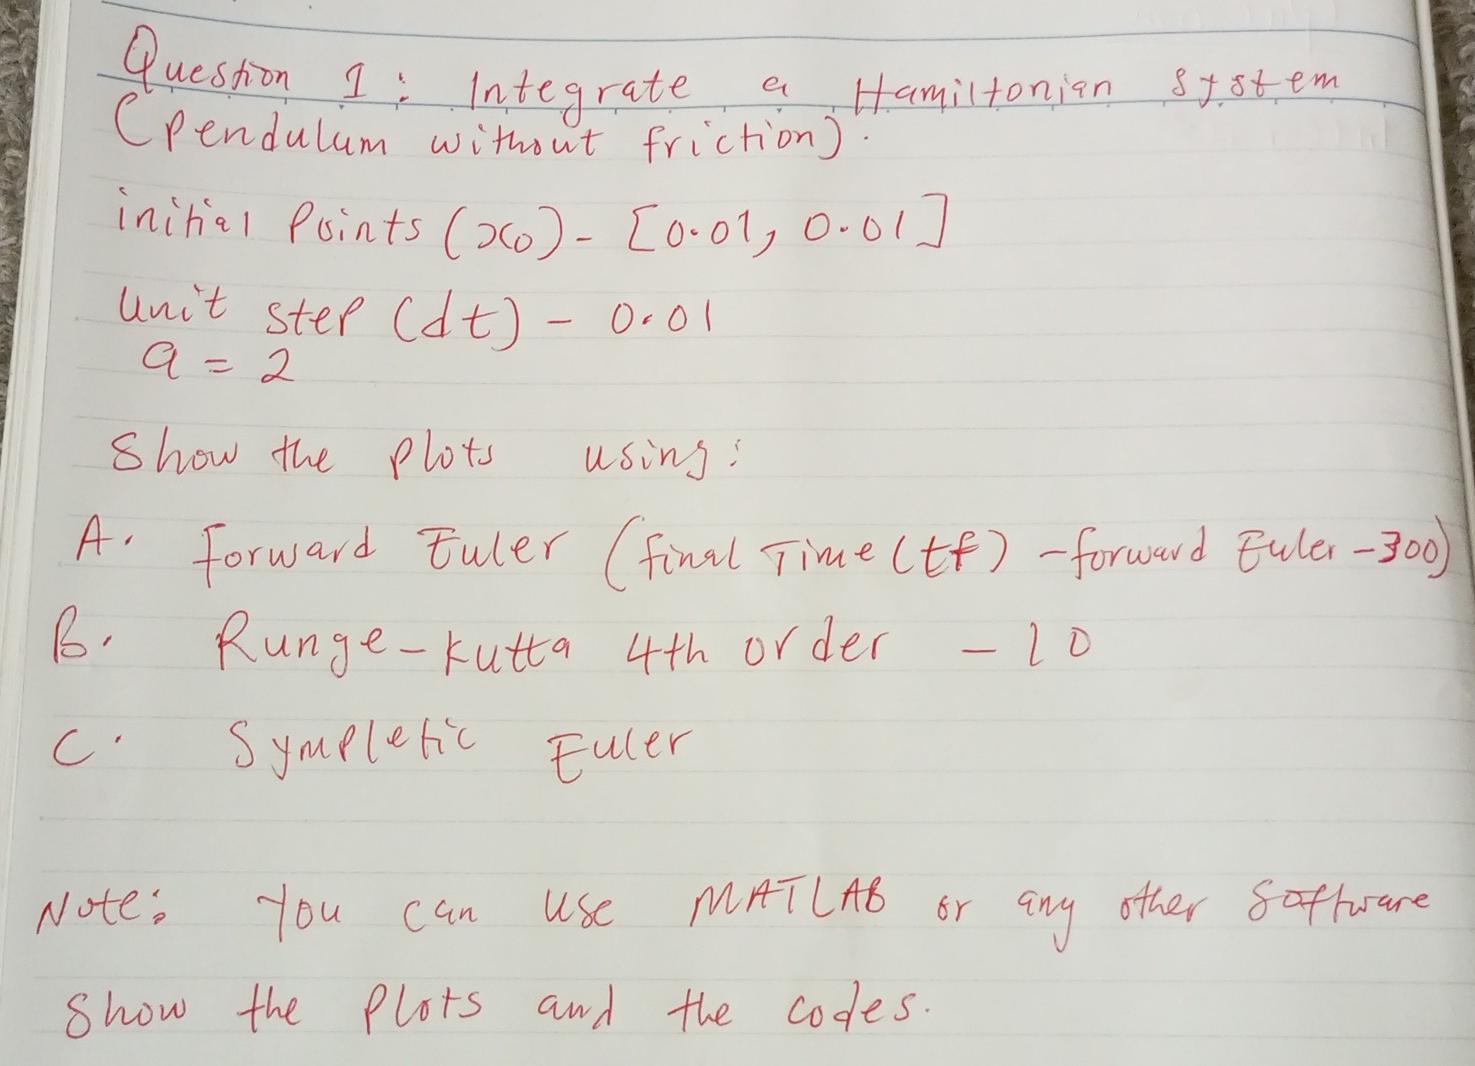 Question 1: Integrate a Hamiltonian System
(Pendulum without friction).
initial Points (x0) - [0.01, 0.01]
Unit step (dt) - 0.01
a = 2
Show the plots using:
A. Forward Euler (final Time (tf) - forward Euler - 300)
B. Runge-Kutta 4th order - 10
C. Sympletic Euler
Note: You can use MATLAB or any other Software
Show the Plots and the codes.